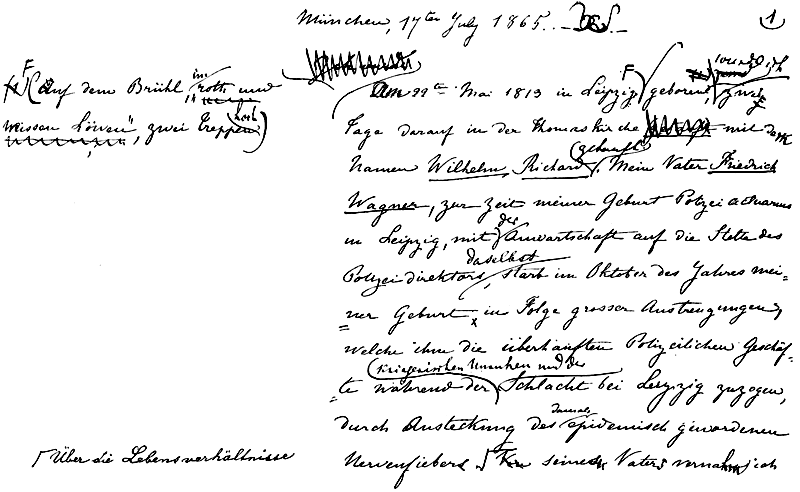 München, 17ter July 1865.
1
F (auf dem Brühl im
"roth und
weissen Löwen", zwei Treppen hoch)
Am 22ten Mai 1813 in Leipzig F geboren, ward ich zwei
Tage darauf in der Thomaskirche mit dem
Namen Wilhelm Richard getauft. Mein Vater Friedrich
Wagner, zur Zeit meiner Geburt Polizeiactuarius
in Leipzig, mit der Anwartschaft auf die Stelle des
Polizeidirektors daselbst, starb im Oktober des Jahres mei-
ner Geburt, in Folge grosser Anstrengungen,
welche ihm die überhäuften Polizeilichen Geschäf-
te während der kriegerischen Unruhen und der Schlacht bei Leipzig zuzogen,
durch Ansteckung des damals epidemisch gewordenen
Nervenfiebers. seines Vaters vernahm ich
Über die Lebensverhältnisse